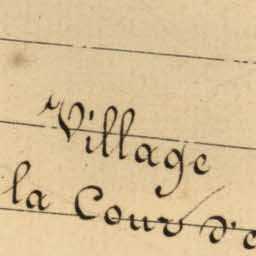 Village
la Cour d'e